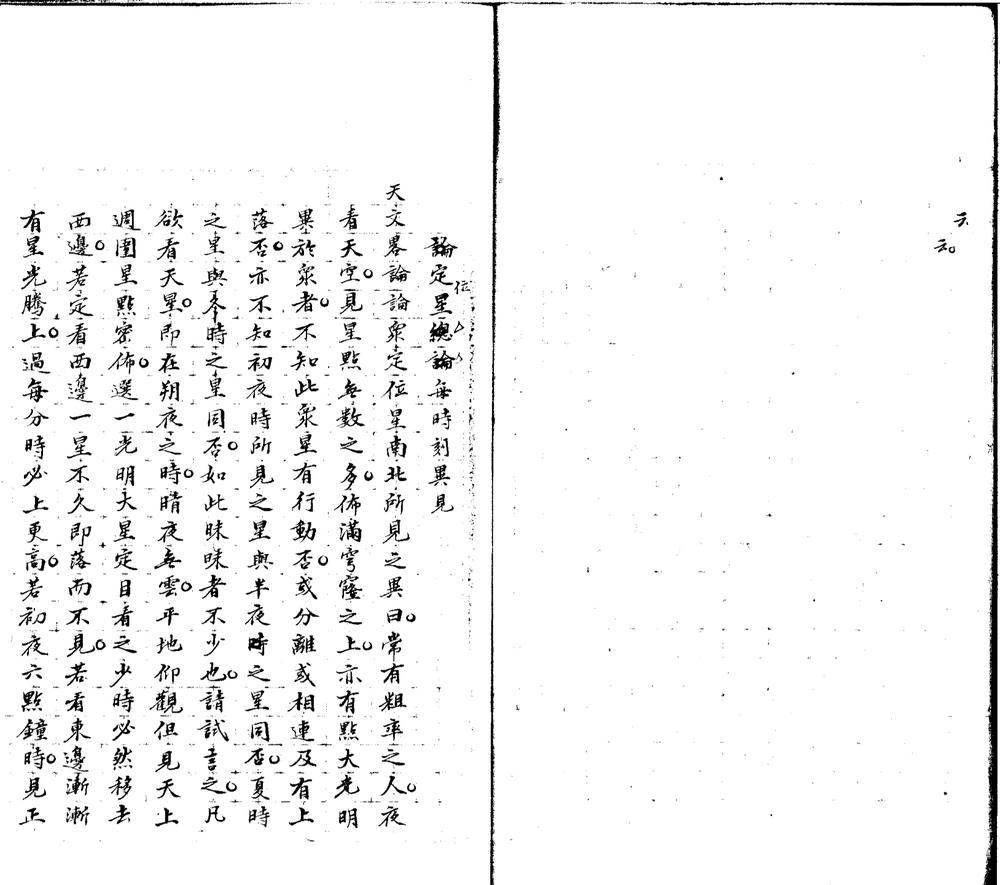 天
知
論定星總論每時刻異見
位
天文畧論論衆定位星南北所見之異曰常有粗率之人夜
看天空見星點無數之多佈滿穹窿之上亦有點大光明
異於衆者不知此衆星有行動否或分離或相連及有上
落否亦不知初夜時所見之星與半夜時之星同否夏時
之星與冬時之星同否如此昧昧者不少也請試言之凡
欲看天星即在朔夜之時晴夜無雲平地仰觀但見天上
週圍星點密佈選一光明大星定目看之少時必然移去
西邊若定看西邊一星不久即落而不見若看東邊漸漸
有星光騰上過每分時必上更高若初夜六點鐘時見正